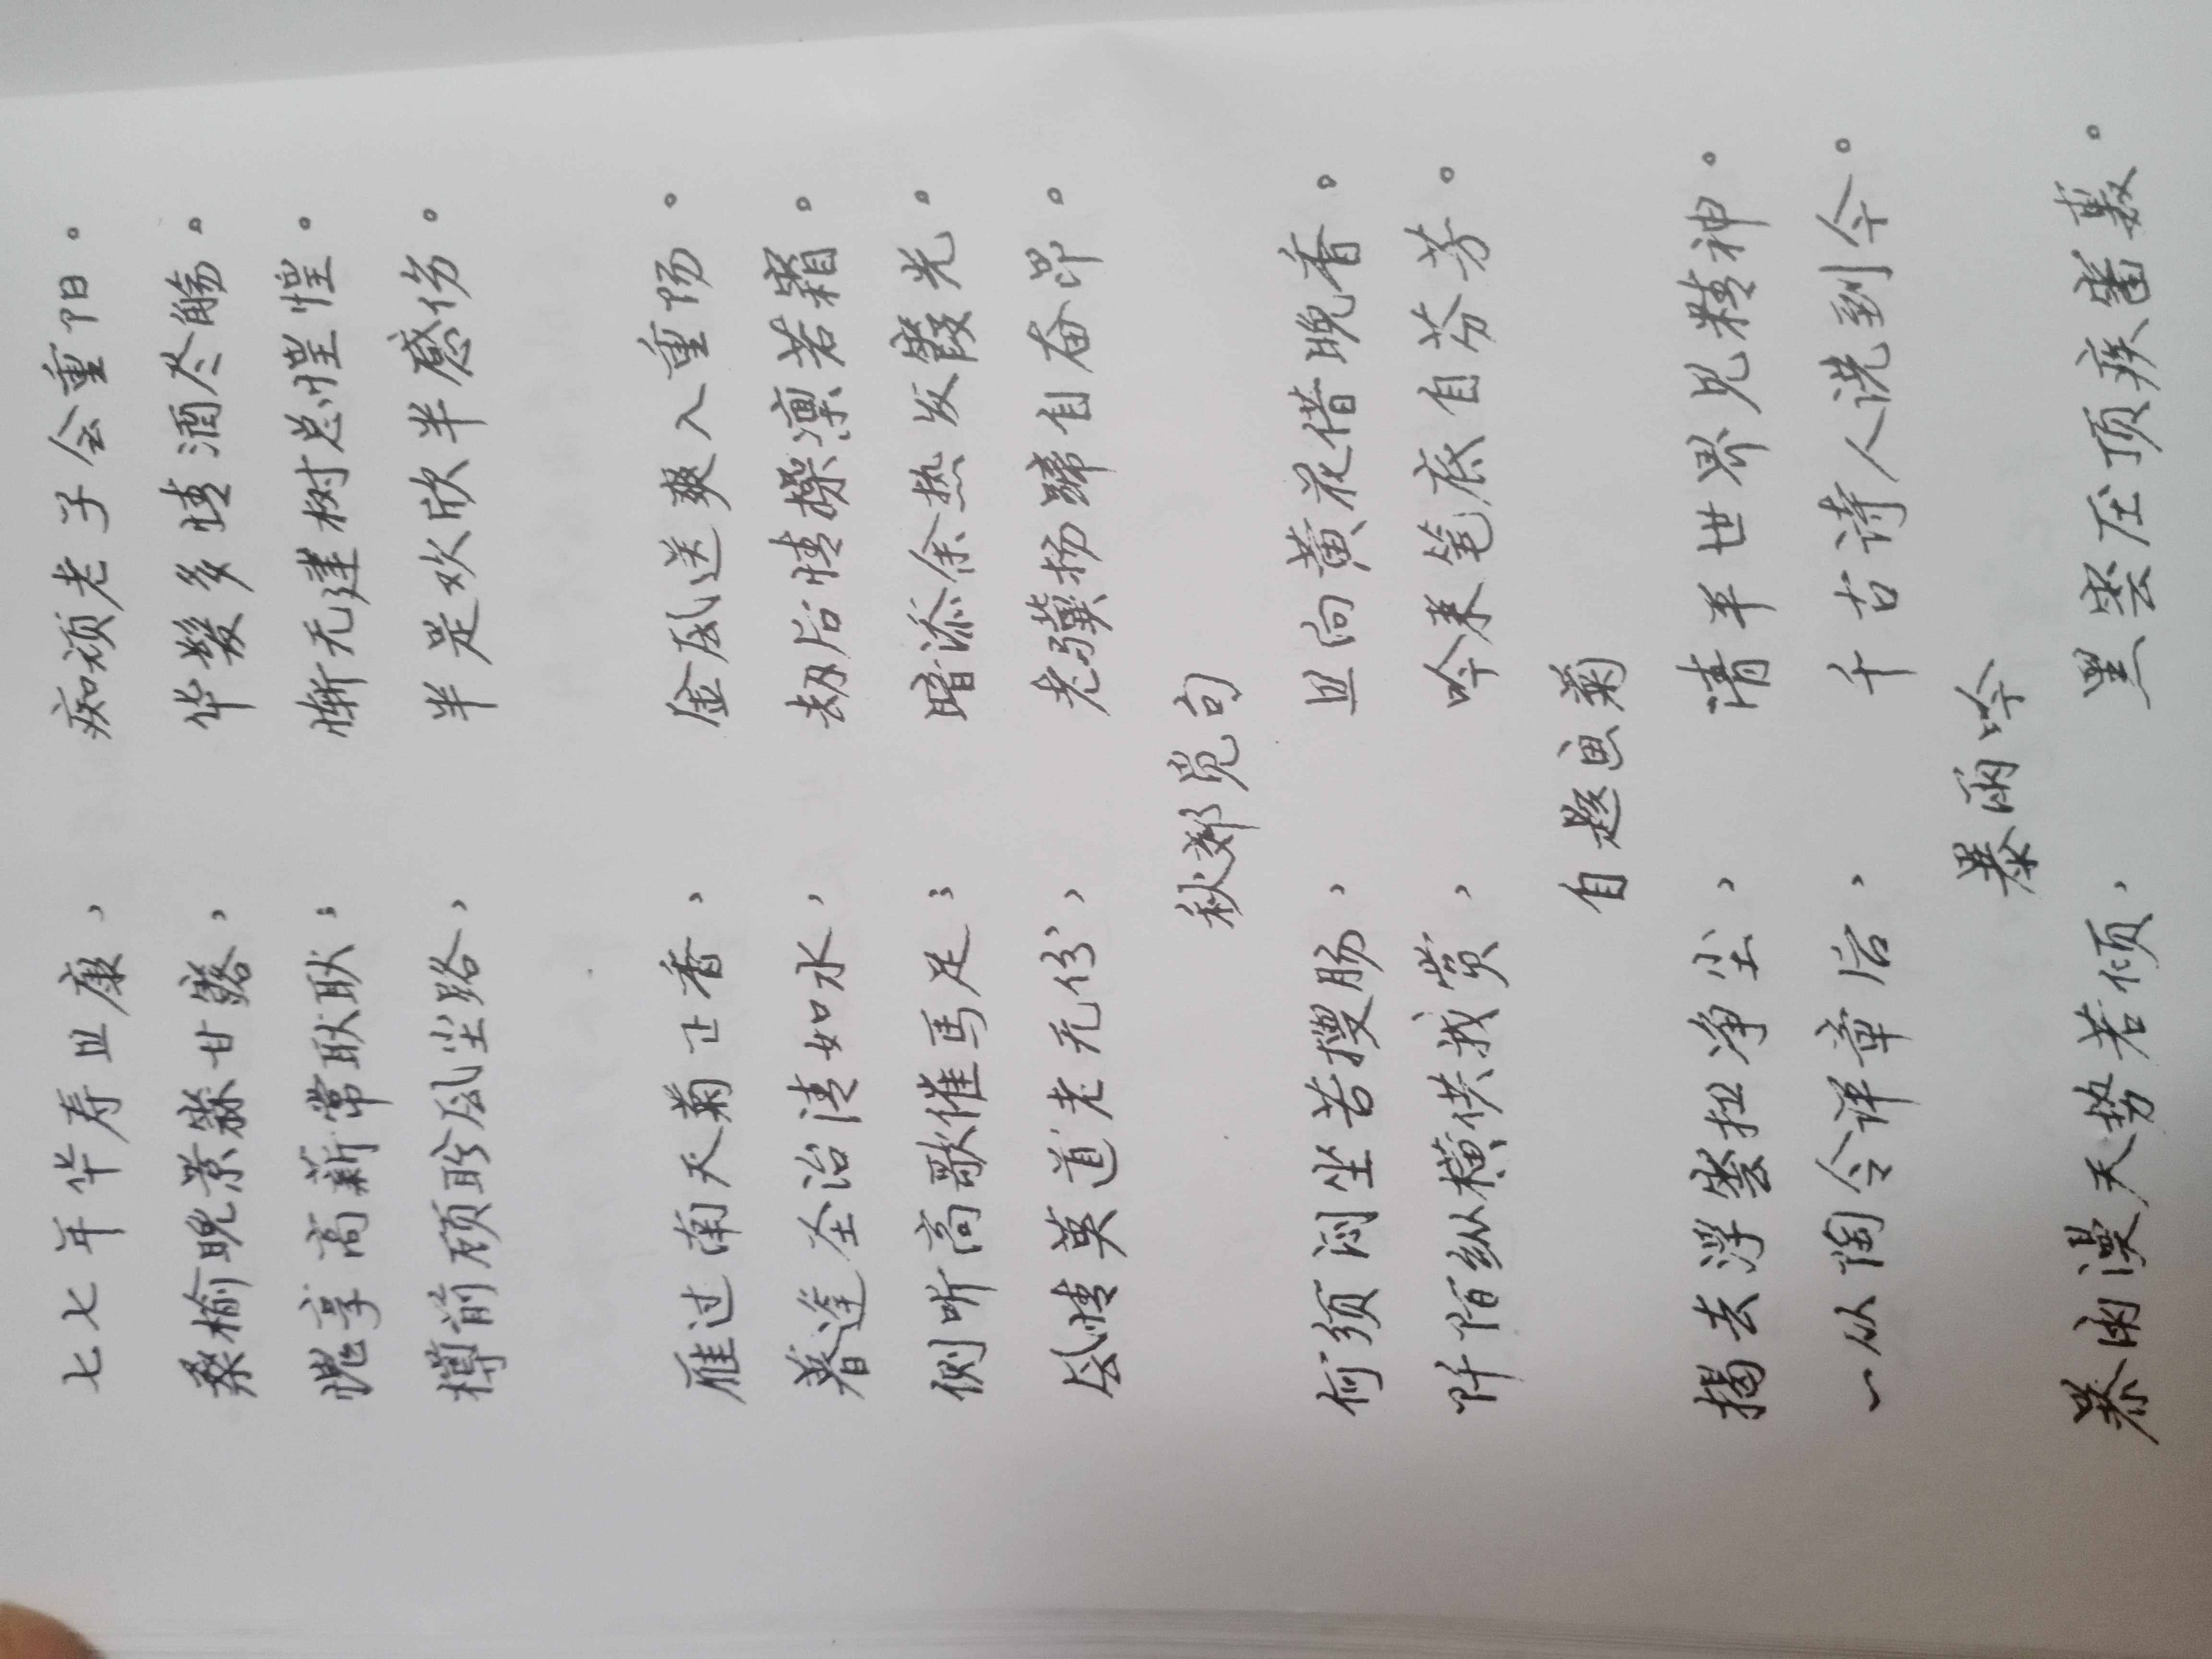 七七年华寿且康，痴顽老子会重阳。
桑榆晚景叨甘露，华发多情酒尽觞。
愧享高薪常耿耿；惭无建树总惶惶。
樽前顾盼风尘路，半是欢欣半感伤。
雁过南天菊正香，金风送爽入重阳。
暮逢全治清如水，劫后情操凛若霜。
侧听高歌催马足；暗添余热发霞光。
风情莫道老无份，老骥扬蹄自奋昂。
秋郊觅句
何须闷坐苦搜肠，且向黄花借晚香。
阡陌纵横供我赏，吟来笔底自芬芳
自题画菊
揭去浮签拉净尘，清羊世界见精神。
一从陶令评章后，千古诗人说到今。
暴雨吟
暴雨漫天势若倾，黑云压顶疾雷轰。